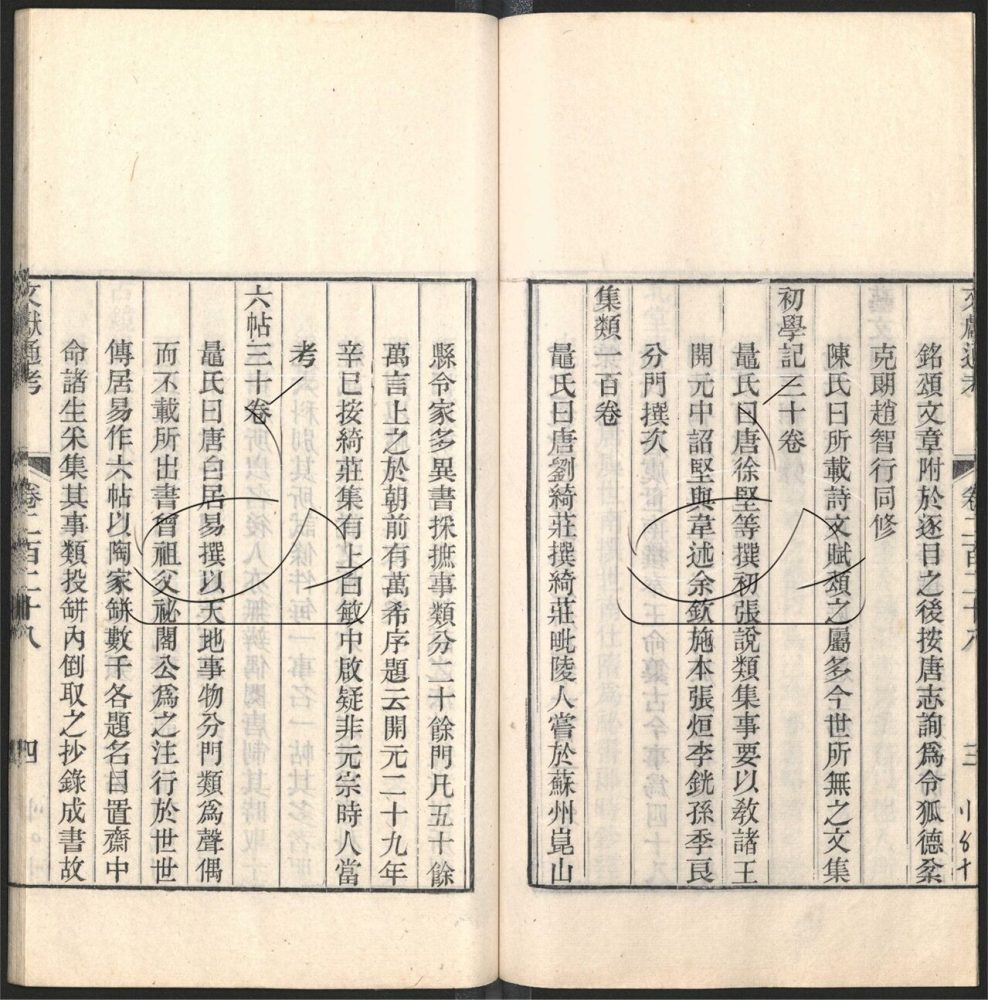 文獻通考 卷二百二十八 三
銘頌文章附於逐目之後按唐志詢爲令狐德棻
克朗趙智行同修
陳氏曰所載詩文賦頌之屬多今世所無之文集
初學記三十卷
鼂氏曰唐徐堅等撰初張說類集事要以敎諸王
開元中詔堅與韋述余欽施本張烜李銳孫季良
分門撰次
集類一百卷
鼂氏曰唐劉綺莊撰綺莊毗陵人嘗於蘇州崑山
縣令家多異書採摭事類分二十餘門凡五十餘
萬言上之於朝前有萬希序題云開元二十九年
辛巳按綺莊集有上白敏中啟疑非元宗時人當
考
六帖三十卷
鼂氏曰唐白居易撰以天地事物分門類爲聲偶
而不載所出書曾祖父祕閣公爲之注行於世世
傳居易作六帖以陶家缾數千各題名目置齋中
命諸生采集其事類投缾內倒取之抄錄成書故
文獻通考 卷二百二十八 四